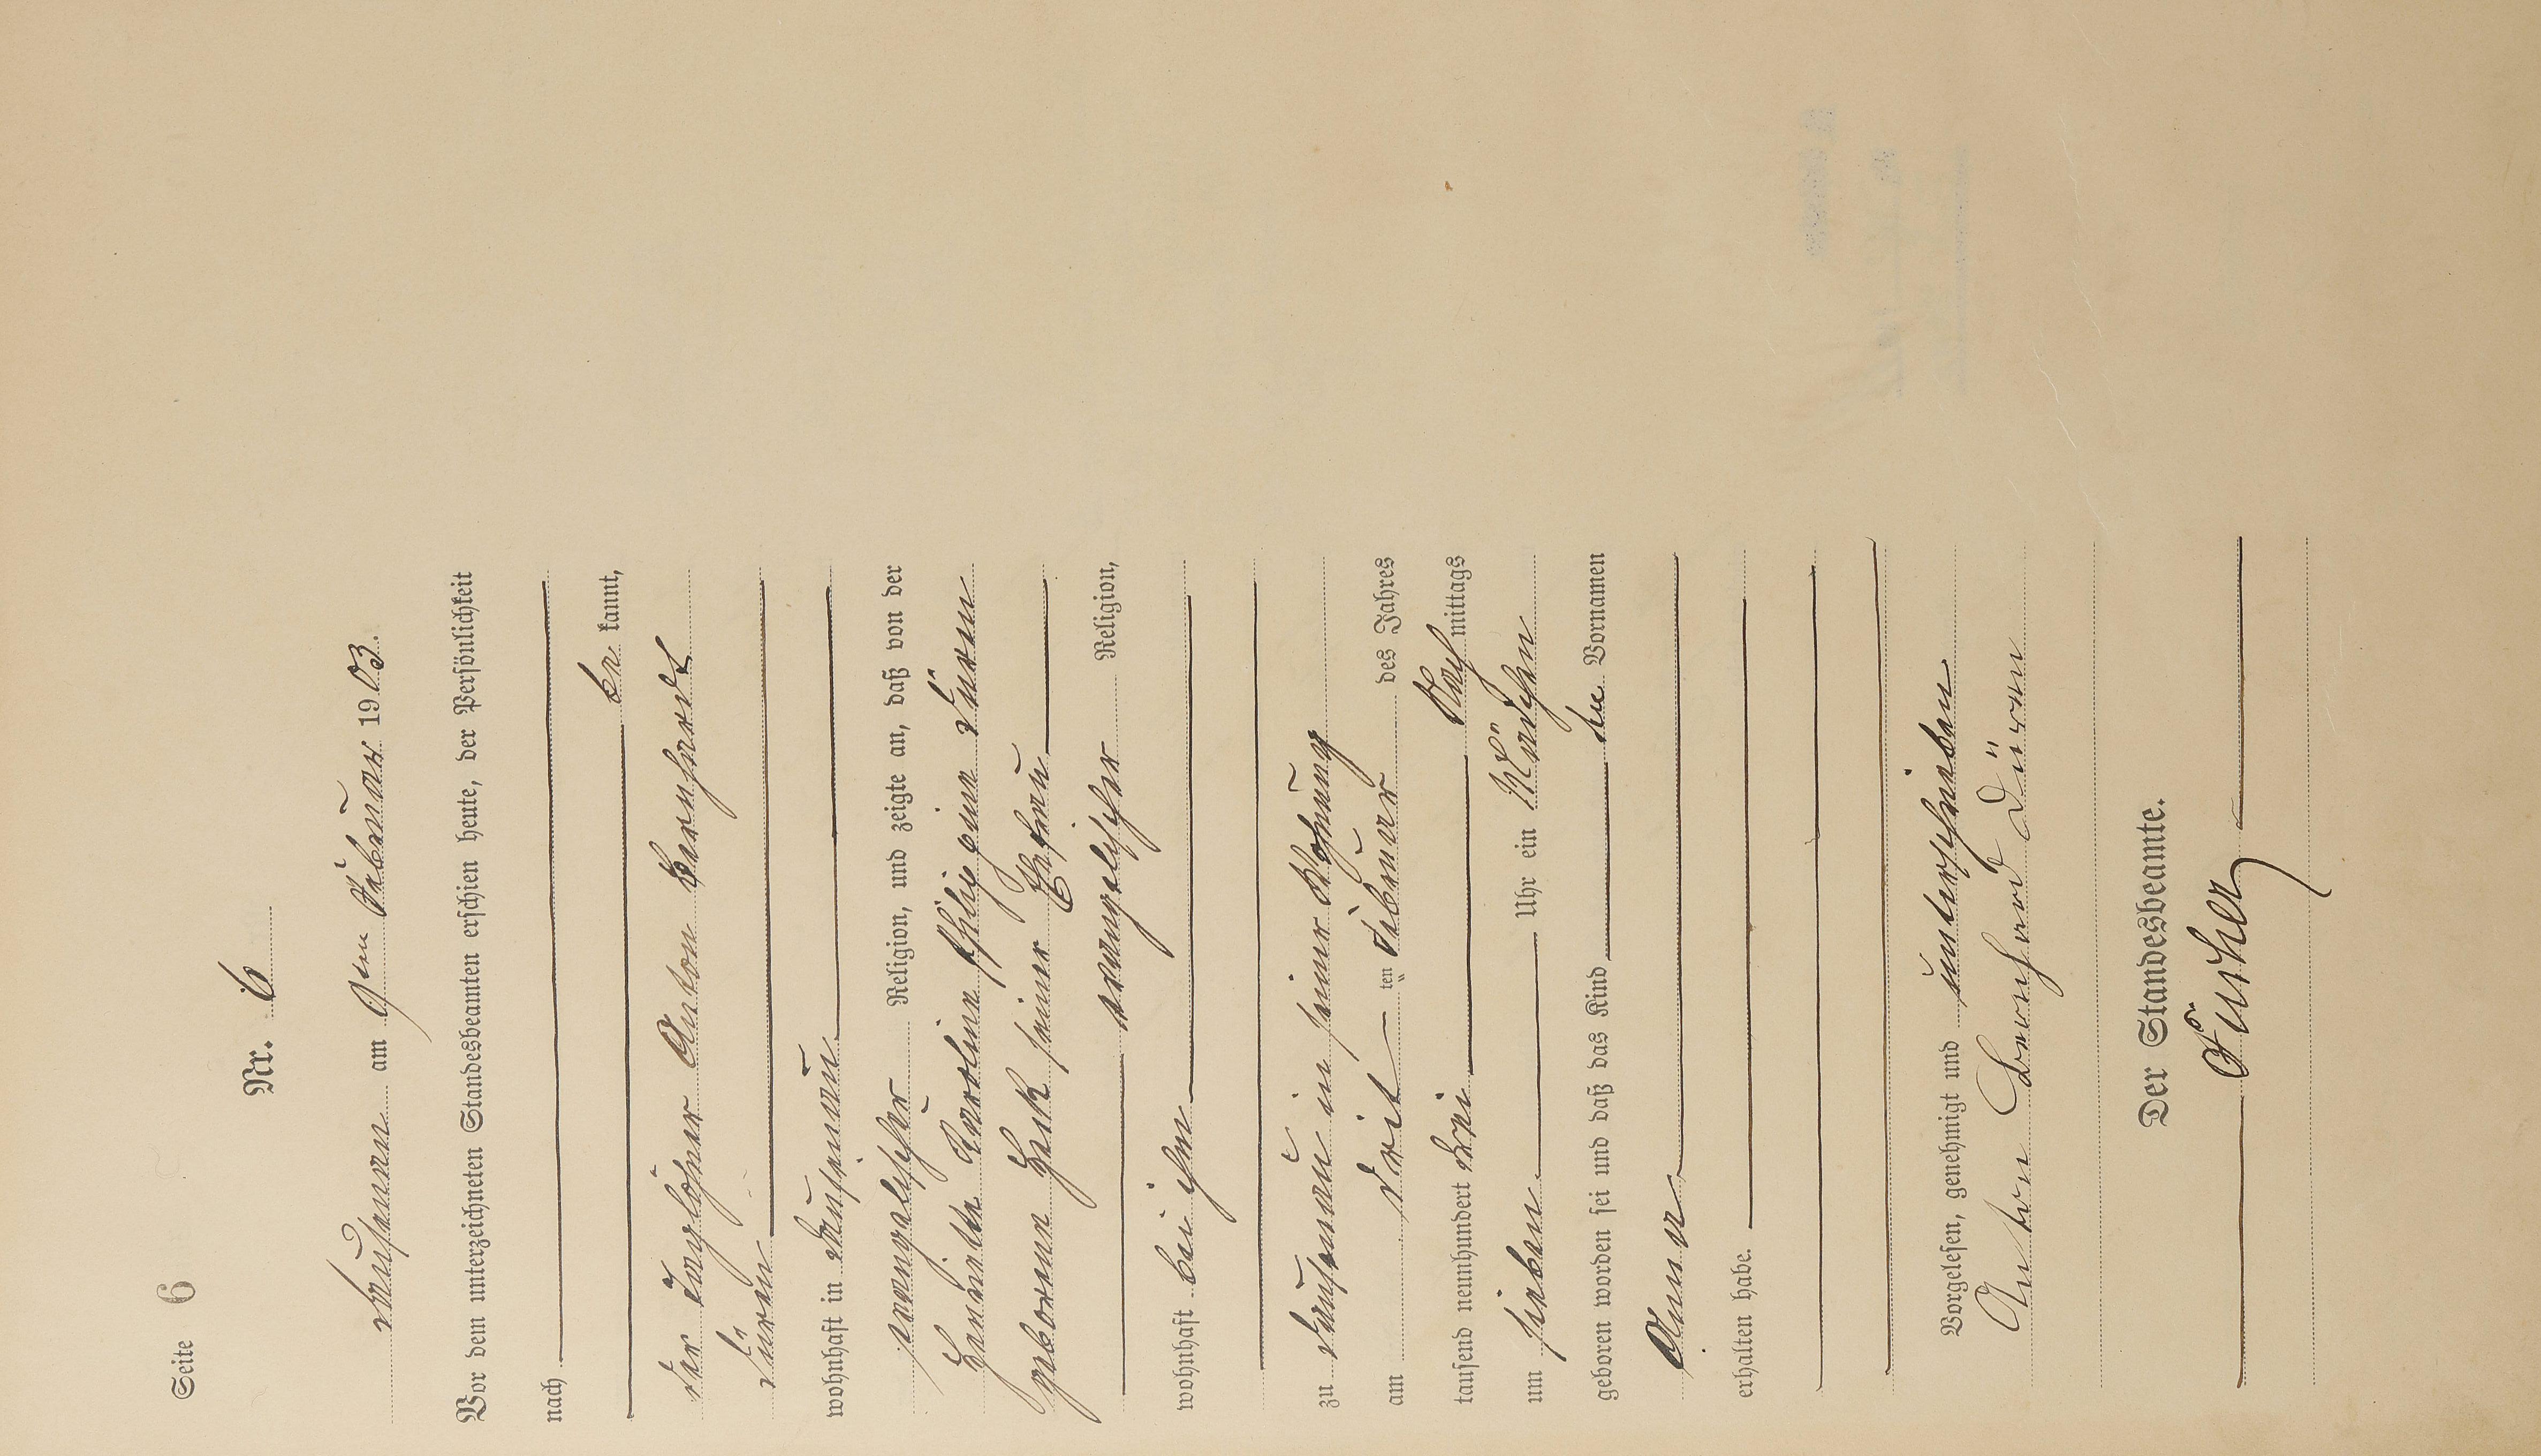 Seite 6
Nr. 6
am 9ten Februar 1903.
Vor dem unterzeichneten Standesbeamten erschien heute, der Persönlichkeit
nach
be kannt,
der Taglöhner Anton Bernhardt
Düren
wohnhaft in
evangelischer Religion, und zeigte an, daß von der
Henriette Karoline Philippine Düren
geborenen Heck seiner Ehefrau
evangelischer Religion,
wohnhaft bei ihm
zu in seiner Wohnung
am dritten Februar des Jahres
tausend neunhundert drei Nach mittags
um sieben Uhr ein Mädchen
geboren worden sei und daß das Kind den Vornamen
Anna
erhalten habe.
Vorgelesen, genehmigt und unterschrieben
Anton Bernhard Düren
Der Standesbeamte.